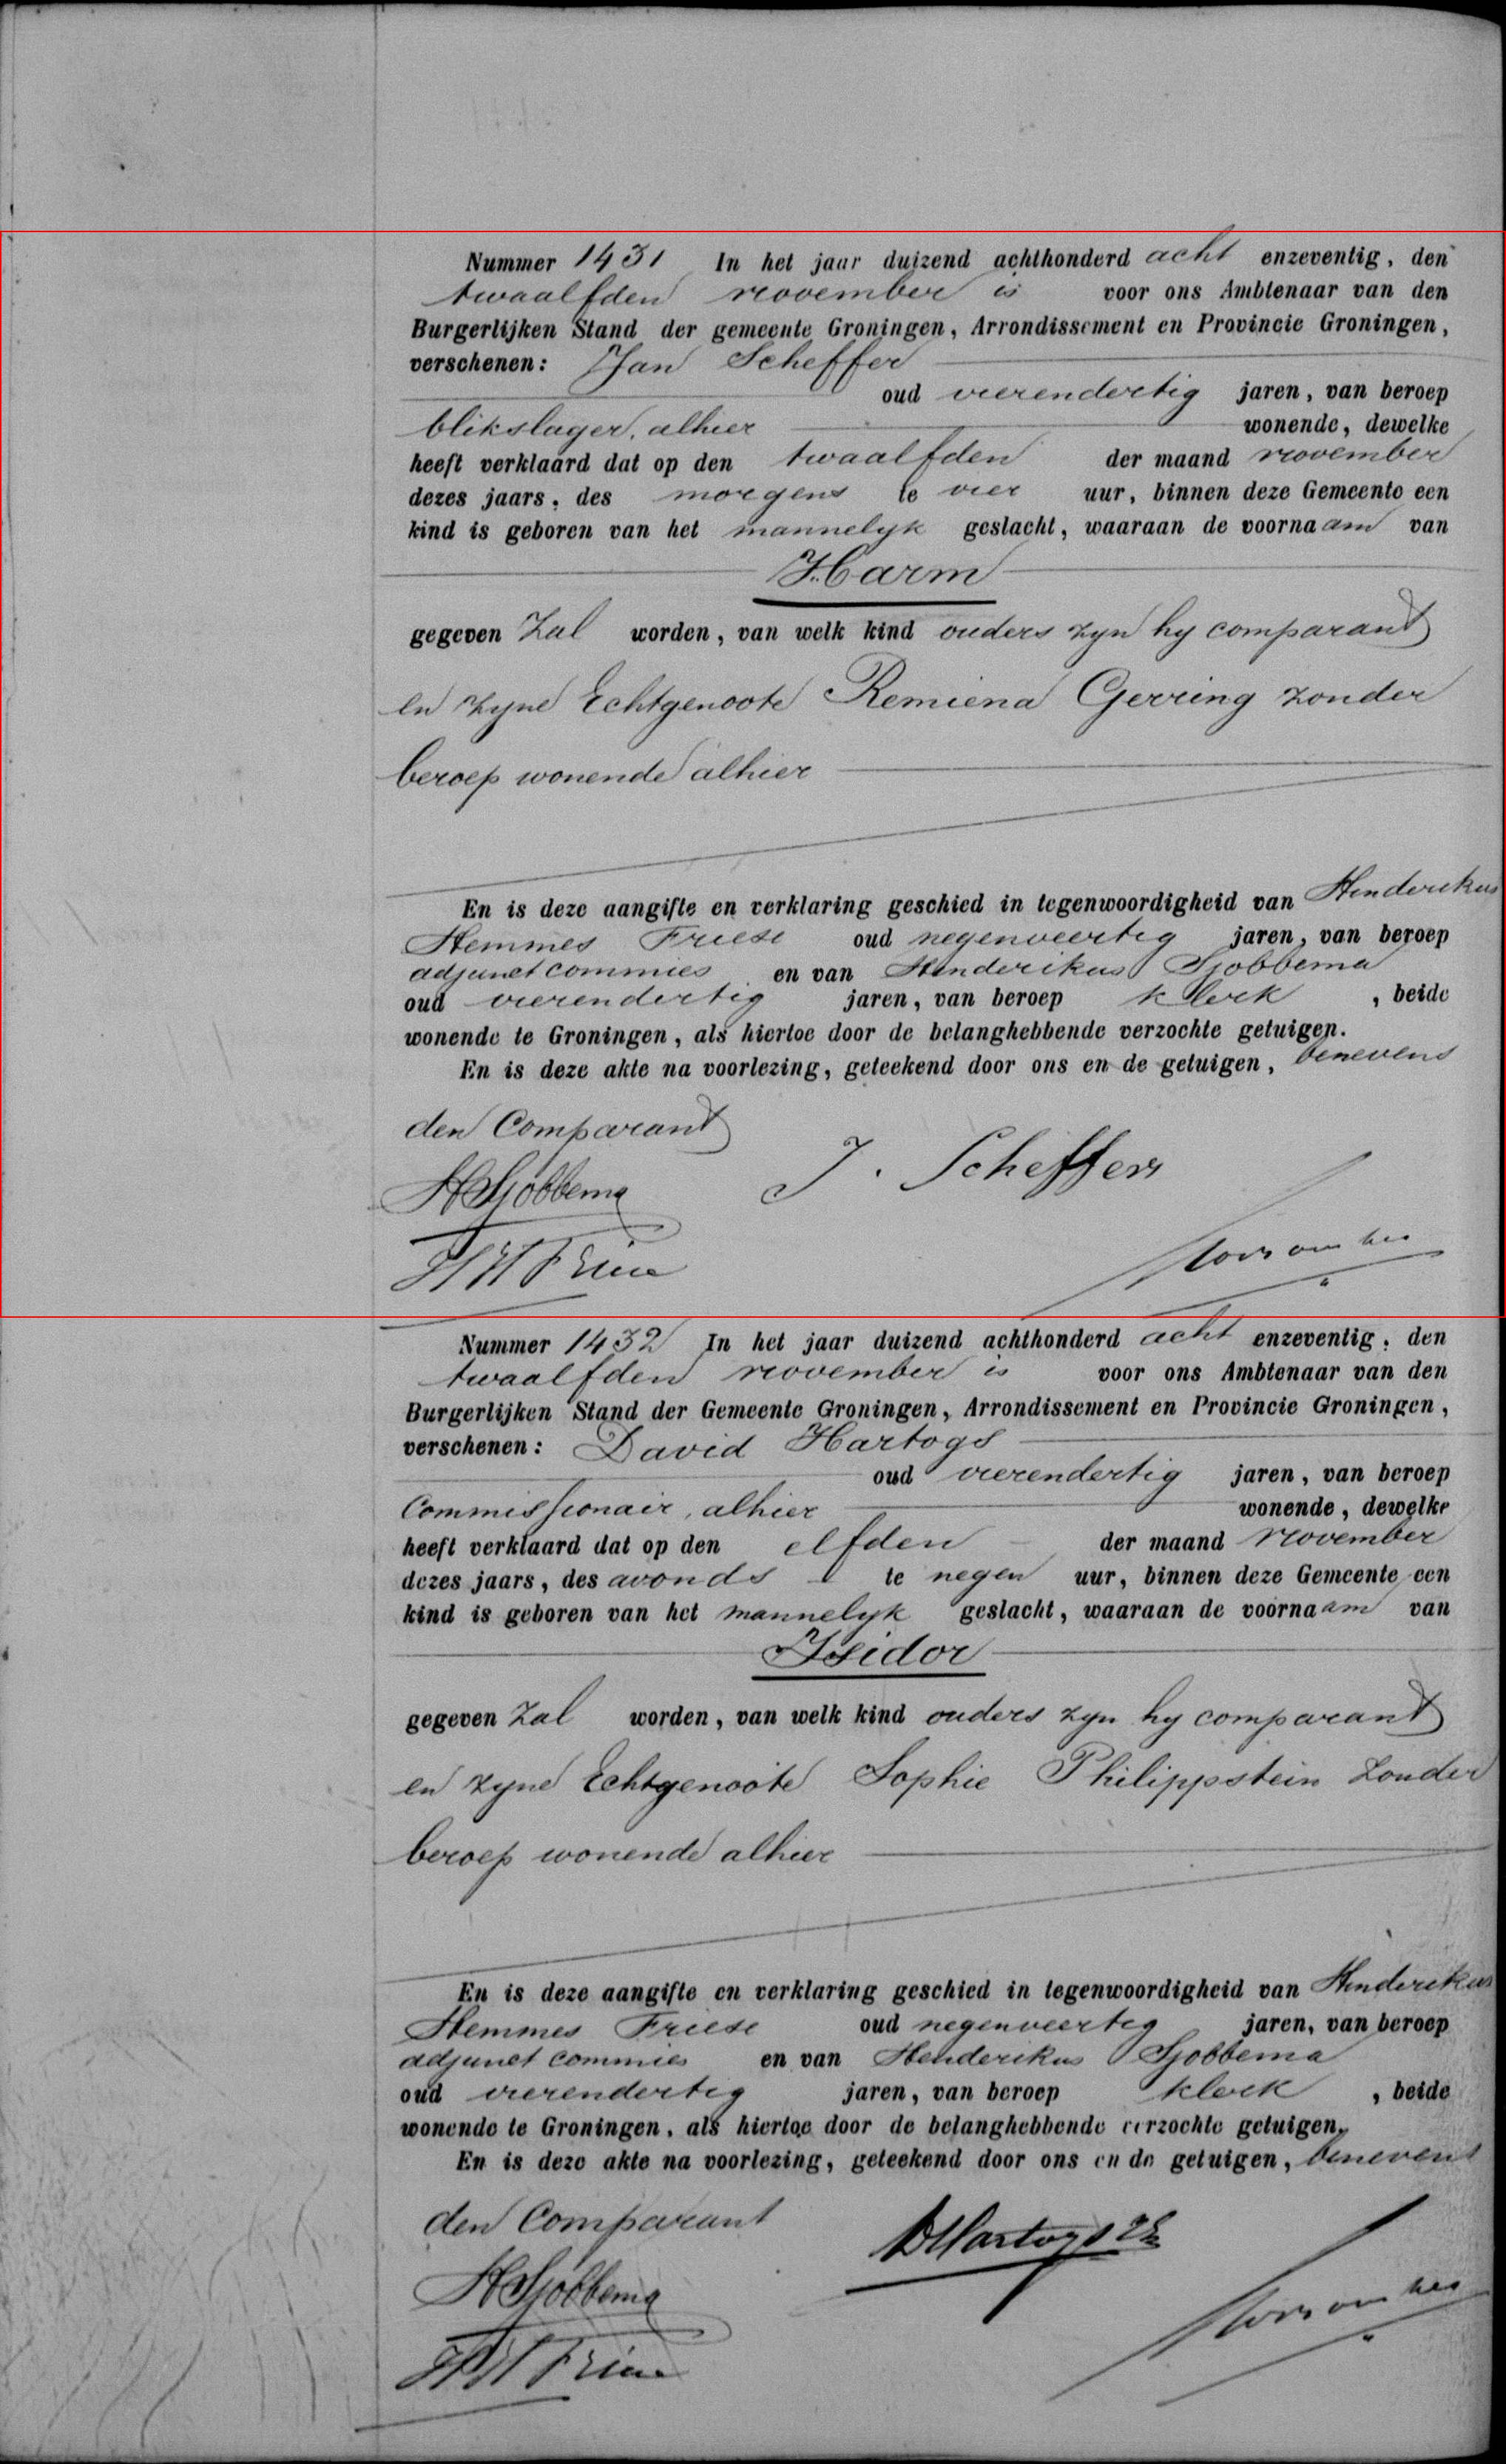 Nummer 1431 In het jaar duizend achthonderd acht enzeventig, den
twaalfden november is voor ons Ambtenaar van den
Burgerlijken Stand der gemeente Groningen, Arrondissement en Provincie Groningen,
verschenen: Jan Scheffer
oud vierendertig jaren, van beroep
blikslager, alhier wonende, dewelke
heeft verklaard dat op den twaalfden der maand november
dezes jaars, des morgens te vier uur, binnen deze Gemeente een
kind is geboren van het mannelyk geslacht, waaraan de voornaam van
Harm
gegeven zal worden, van welk kind ouders zyn hy comparant
en zyne Echtgenoote Remiena Gerring zonder
beroep wonende alhier
En is deze aangifte en verklaring geschied in tegenwoordigheid van Henderikus
Hemmes Friese oud negenveertig jaren, van beroep
adjunct commies en van Henderikus Sjobbema
oud vierendertig jaren, van beroep klerk, beide
wonende te Groningen, als hiertoe door de belanghebbende verzochte getuigen.
En is deze akte na voorlezing, geteekend door ons en de getuigen, benevens
den Comparant
J. Scheffer
HSjobbema
HH Friese
Nummer 1432 In het jaar duizend achthonderd acht enzeventig, den
twaalfden november is voor ons Ambtenaar van den
Burgerlijken Stand der Gemeente Groningen, Arrondissement en Provincie Groningen,
verschenen: David Hartogs
oud vierendertig jaren, van beroep
Commissionair, alhier wonende, dewelke
heeft verklaard dat op den elfden der maand november
dezes jaars, des avonds te negen uur, binnen deze Gemeente een
kind is geboren van het mannelyk geslacht, waaraan de voornaam van
Isidor
gegeven zal worden, van welk kind ouders zyn hy comparant
en zyne Echtgenoote Sophie Philippstein zonder
beroep wonende alhier
En is deze aangifte en verklaring geschied in tegenwoordigheid van Henderikus
Hemmes Friese oud negenveertig jaren, van beroep
adjunct commies en van Henderikus Sjobbema
oud vierendertig jaren, van beroep klerk, beide
wonende te Groningen, als hiertoe door de belanghebbende verzochte getuigen.
En is deze akte na voorlezing, geteekend door ons en de getuigen, benevens
den Comparant
DHartogs
HSjobbema
HH Friese